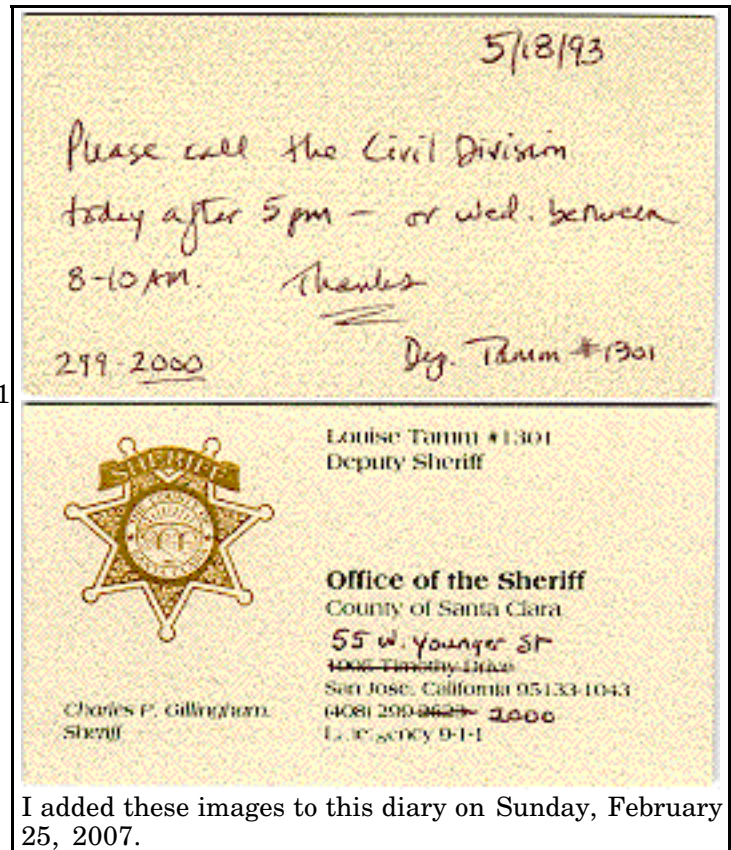 5/18/93
Please call the Civil Division
today after 5 pm – or wed. between
8-10 AM. Thanks
299-2000 Dep. Tamm #1301
1
SHERIFF
Louise Tamm #1301
Deputy Sheriff
Office of the Sheriff
County of Santa Clara
55 W. Younger St
1005 Timothy Drive
San Jose, California 95133-1043
(408) 299 2000
Emergency 9-1-1
Charles P. Gillingham,
Sheriff
I added these images to this diary on Sunday, February
25, 2007.